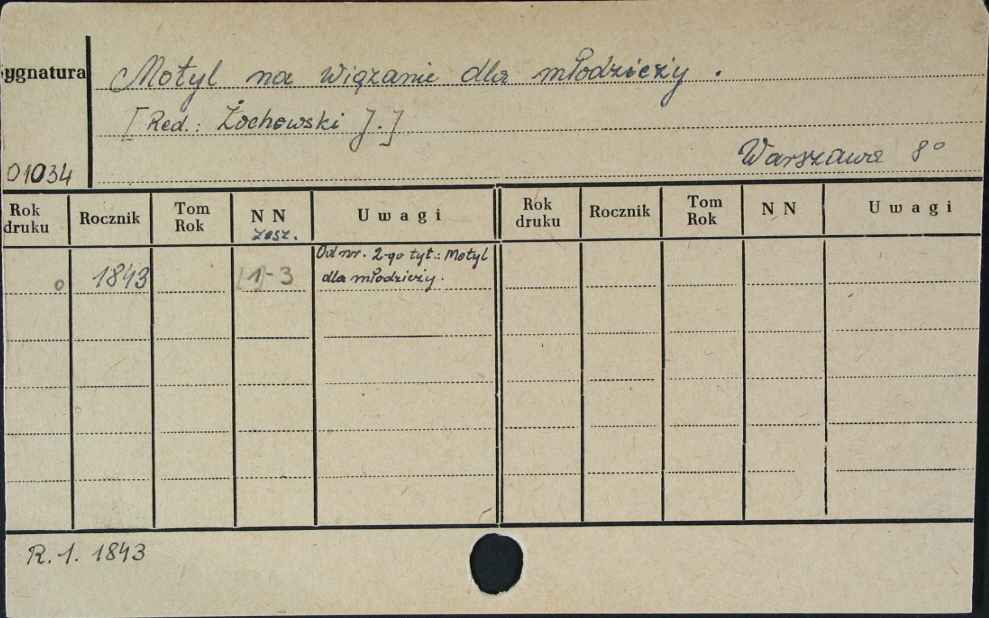 Sygnatura
Motyl na Wiązanie dla młodzieży.
[Red.: Żochowski J.]
Warszawa 8°
01034
Rok druku Rocznik Tom Rok NN zesz. Uwagi Rok druku Rocznik Tom Rok NN Uwagi
Od nr. 2-go tyt.: Motyl
o 1843 [1]-3 dla młodzieży.
R. 1. 1843